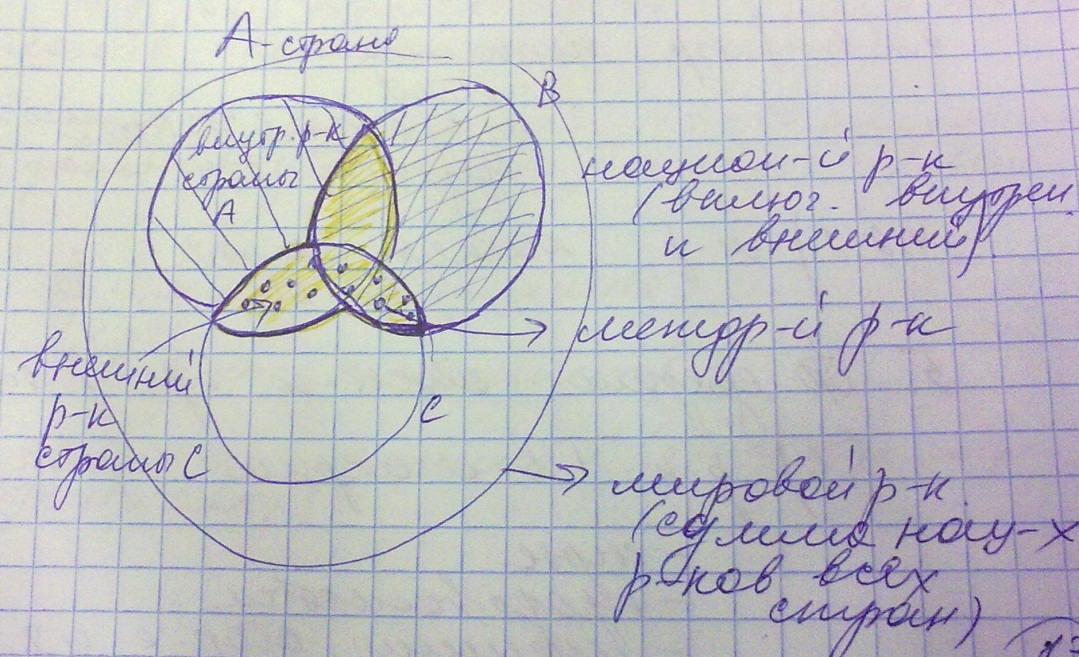 А-страна
В
внутр. р-к
страны
А
национ-й р-к
(включ. внутрен.
и внешний)
междр-й р-к
внешний
р-к
страны С
С
мировой р-к
(сумма нац-х
р-ков всех
стран)